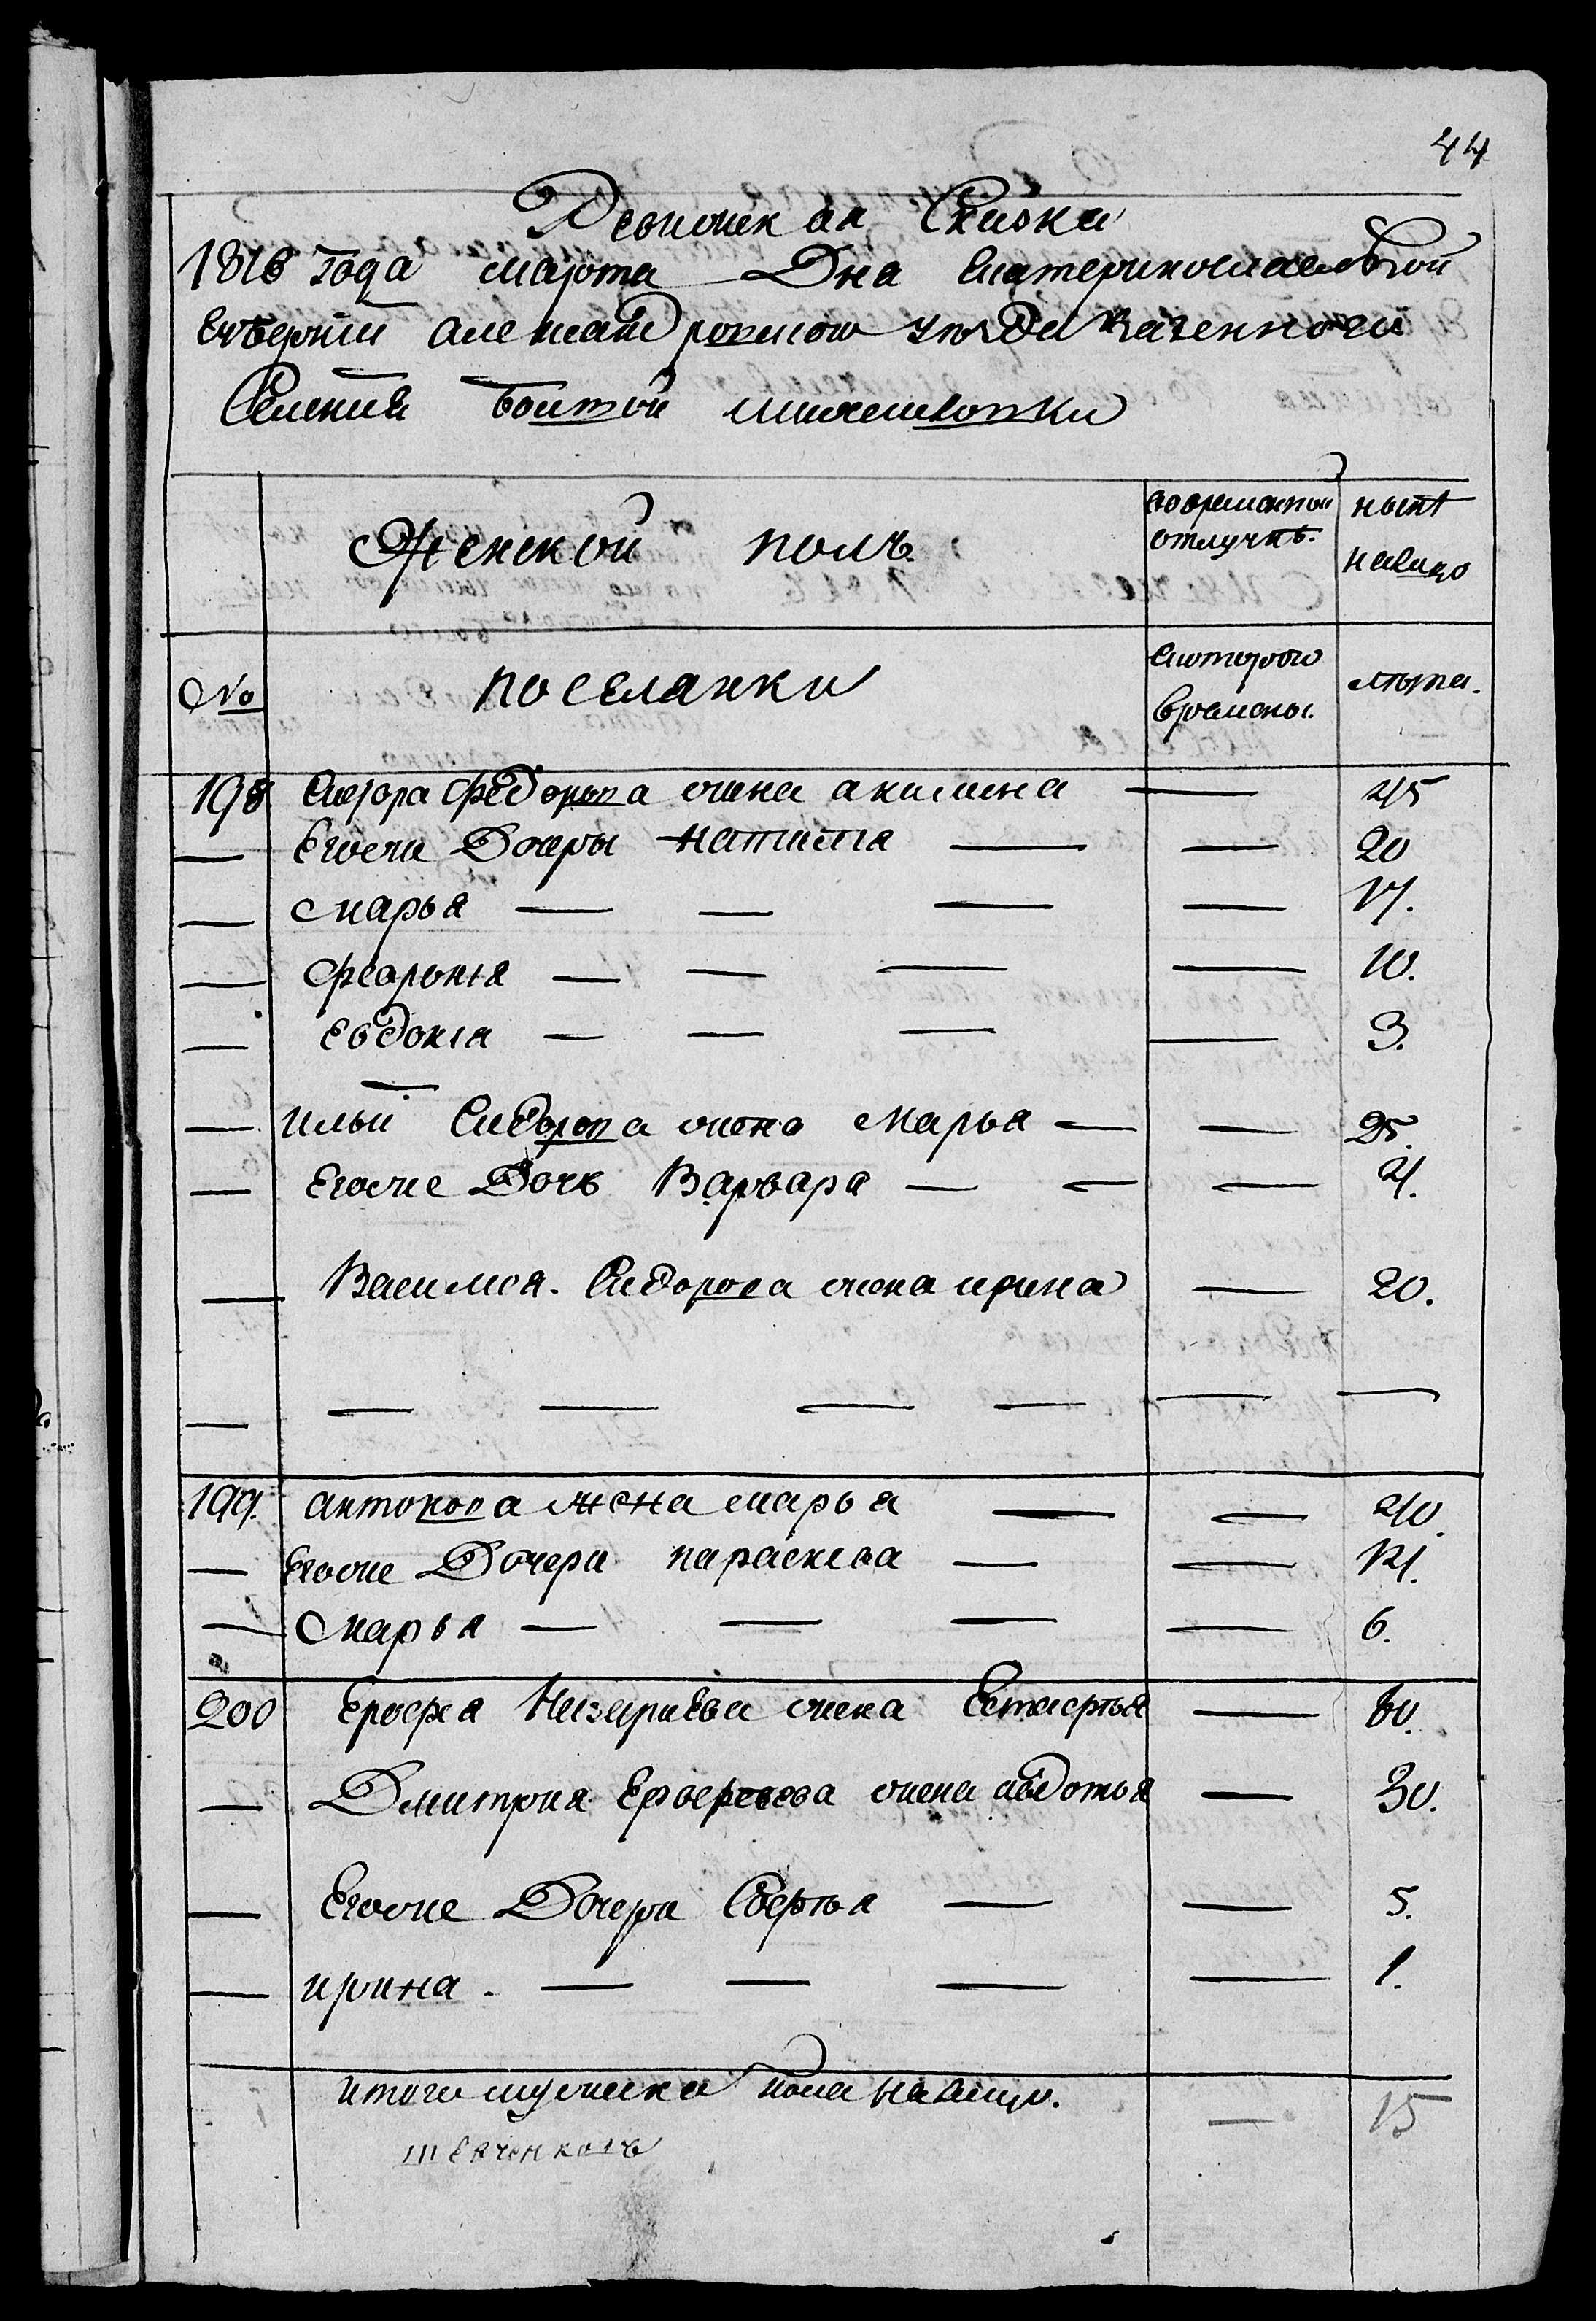 44
Ревижская Скаска
1816 года марта Дна Екатеринославской
Губернии Александровского уезда казенного
Селения больтой михаиловки
Женской полъ
во временной нынѣ
отлучкѣ. налицо
№ поселянки
с которого лѣта.
времены.
198 Сидора Федорова жена акилина — 45
— Егоже Дочеры Наталia — — 20
— Марья — — — — 17.
— Феврония — — — — 10.
— Евдокiя — — — — 3.
— ильи Сидорова жена Марья — — 25.
— Егоже Дочь Варвара — — — 4.
— Василия. Сидорова жена ирина — 20.
— — — — — — —
199. антонова жена марья — — 40.
— Егоже Дочери параскева — — 14.
— Марья — — — — 6.
200 Ерофея Назариева жена — 60.
— Дмитрия Ерофеева жена авдотья — 30.
— Егоже Дочери — — 5.
— ирина. — — — — 1.
итого женска пола налицо. — 15